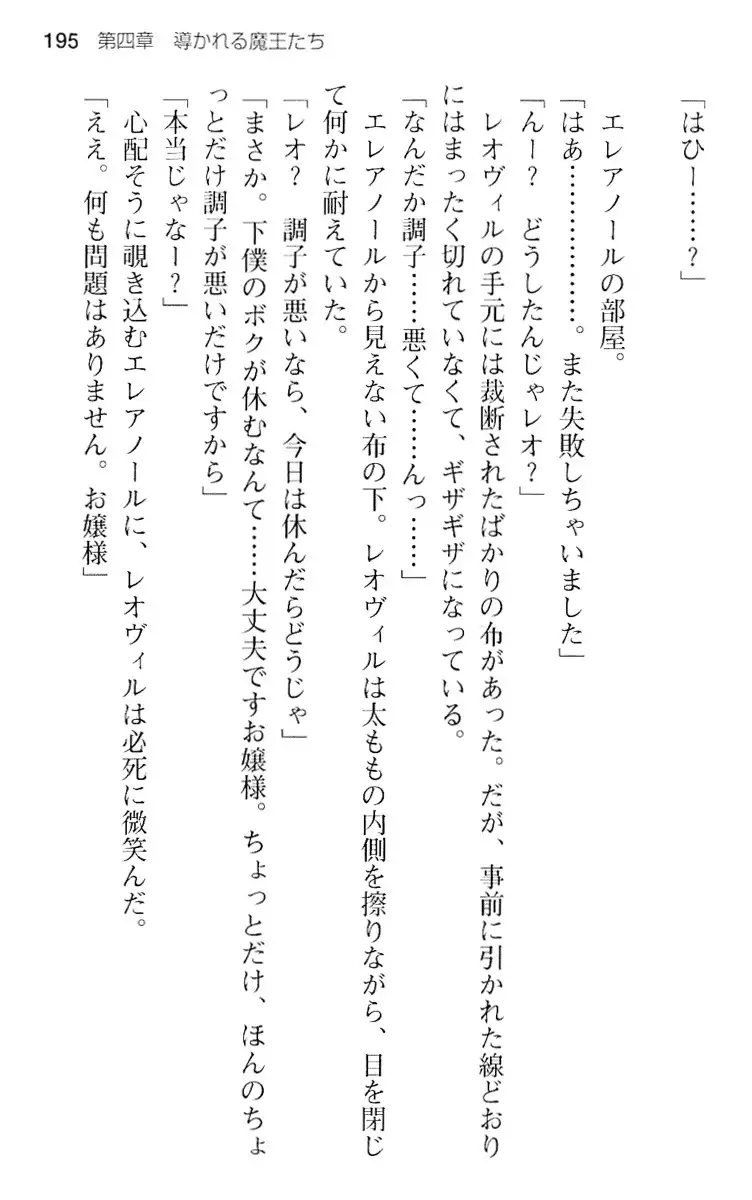 195 第四章 導かれる魔王たち
「はひー……？」
エレアノールの部屋。
「はぁ………………。また失敗しちゃいました」
「んー？ どうしたんじゃレオ？」
レオヴィルの手元には裁断されたばかりの布があった。だが、事前に引かれた線どおり
にはまったく切れていなくて、ギザギザになっている。
「なんだか調子……悪くて……んっ……」
エレアノールから見えない布の下。レオヴィルは太ももの内側を擦りながら、目を閉じ
て何かに耐えていた。
「レオ？ 調子が悪いなら、今日は休んだらどうじゃ」
「まさか。下僕のボクが休むなんて……大丈夫ですお嬢様。ちょっとだけ、ほんのちょ
っとだけ調子が悪いだけですから」
「本当じゃなー？」
心配そうに覗き込むエレアノールに、レオヴィルは必死に微笑んだ。
「ええ。何も問題はありません。お嬢様」